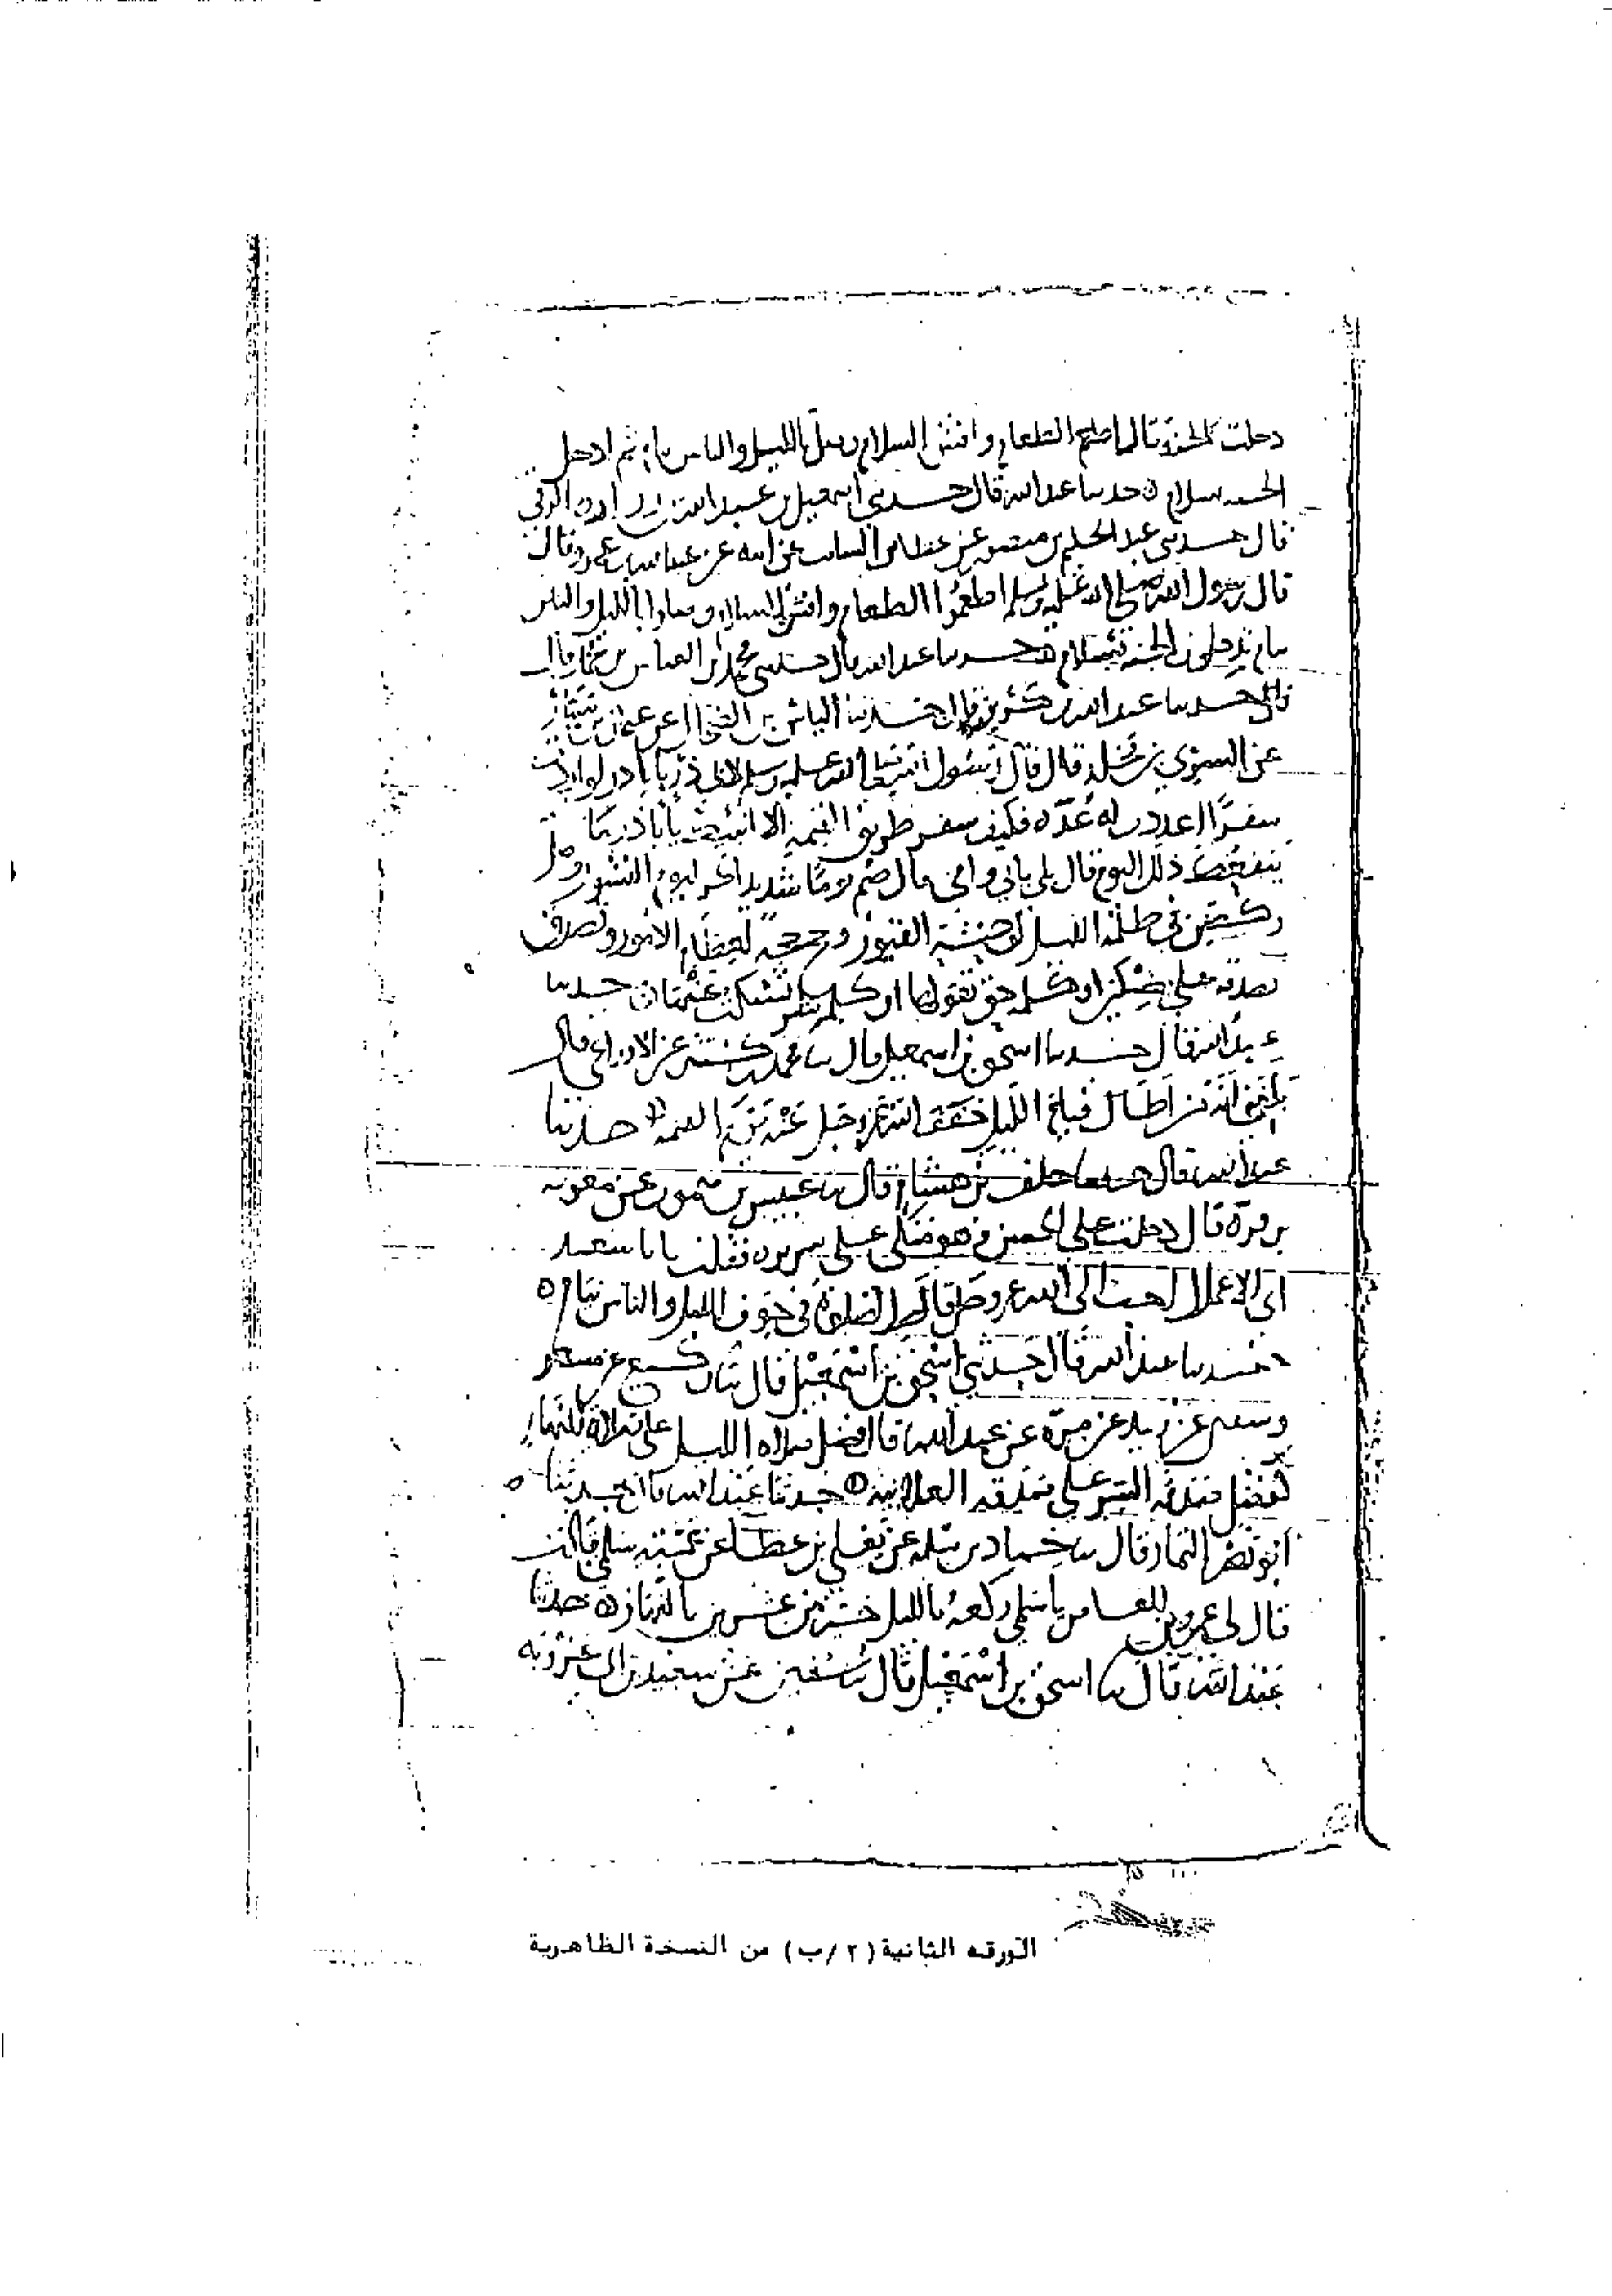 دخلت الجنة قال اطعم الطعام وافش السلام وصل بالليل والناس نيام ثم ادخل
الجنه بسلام ه حدثنا عبد الله قال حدثني اسمعيل بن عبد الله بن زرارة الرقي
قال حدثني عبد الحكيم بن منصور عن عطا بن السائب عن ابيه عن عبد الله بن عمرو قال
قال رسول الله صلى الله عليه وسلم اطعموا الطعام وافشوا السلام وصلوا بالليل والناس
نيام تدخلون الجنه بسلام ه حدثنا عبد الله قال حدثني محمد بن العباس بن
قال حدثنا عبد الله بن قال حدثنا بن الضحاك عن عثمان بن
عن السري بن مخلد قال قال رسول الله صلى الله عليه وسلم لابي ذر يا با ذر لو اردت
سفرا اعددت له عدة فكيف سفر طريق القيمة الا انبئك يا با ذر بما
ينفعك ذلك اليوم قال بلى بابي وامي قال صم يوما شديد الحر ليوم النشور وصل
ركعتين في ظلمة الليل لوحشة القبور وحج حجة لعظام الامور وتصدق
بصدقه على مسكين او كلمه حق تقولها او كلمه شر تسكت عنها ه حدثنا
عبد الله قال حدثنا اسحق بن اسمعيل قال ثنا محمد بن كثير عن الاوزاعي قال
بلغني انه من اطال قيام الليل خفف الله عز وجل عنه يوم القيمه ه حدثنا
عبد الله قال حدثنا خلف بن هشام قال ثنا عبيس بن ميمون عن معويه
بن قرة قال دخلت على الحسن وهو متكئ على سريره فقلت يا با سعيد
اي الاعمال احب الى الله عز وجل قال الصلوة في جوف الليل والناس نيام ه
حدثنا عبد الله قال حدثني اسحق بن اسمعيل قال ثنا وكيع عن مسعر
وسفين عن زبيد عن مرة عن عبد الله قال فضل صلاه الليل على صلاة النهار
كفضل صدقه السر على صدقه العلانيه ه حدثنا عبد الله قال حدثنا
ابو نصر التمار قال ثنا حماد بن سلمه عن يعلى بن عطا عن عمته سلمى قالت
قال لي عمرو بن العاص يا سلمى ركعة بالليل خير من عشرين بالنهار ه حدثنا
عبد الله قال ثنا اسحق بن اسمعيل قال ثنا سفين عن سعيد بن ابي عروبه
الورقه الثانية (٢/ب) من النسخة الظاهرية